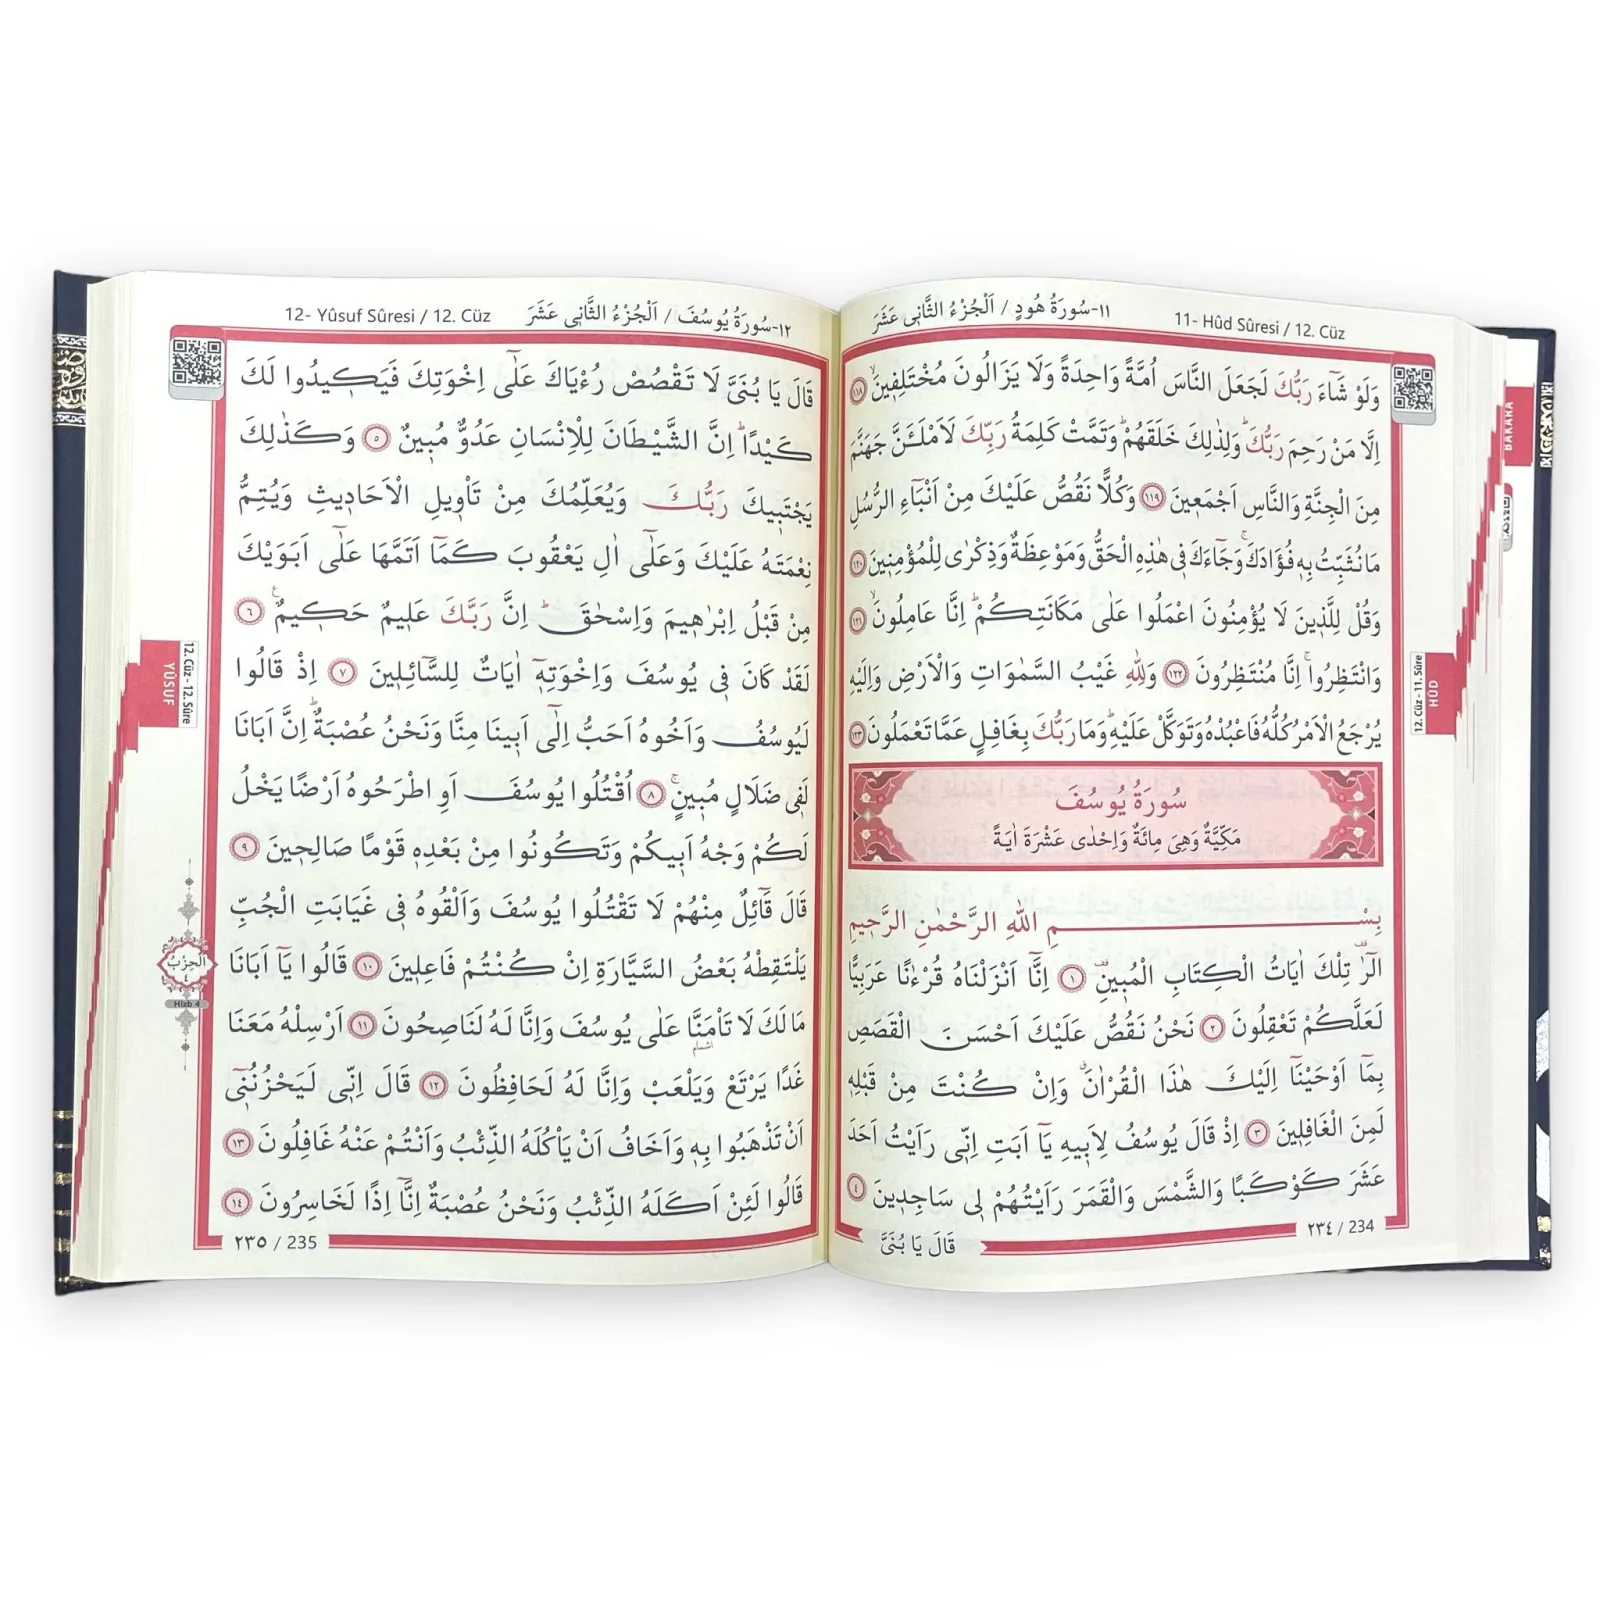 11- Hûd Sûresi / 12. Cüz
١١-سُورَةُ هُودٍ / اَلْجُزْءُ الثَّانٖى عَشَرَ
وَلَوْ شَٓاءَ رَبُّكَ لَجَعَلَ النَّاسَ اُمَّةً وَاحِدَةً وَلَا يَزَالُونَ مُخْتَلِفٖينَۙ ١١٨
اِلَّا مَنْ رَحِمَ رَبُّكَؕ وَلِذٰلِكَ خَلَقَهُمْؕ وَتَمَّتْ كَلِمَةُ رَبِّكَ لَاَمْلَـَٔنَّ جَهَنَّمَ
مِنَ الْجِنَّةِ وَالنَّاسِ اَجْمَعٖينَ ١١٩ وَكُلًّا نَقُصُّ عَلَيْكَ مِنْ اَنْبَٓاءِ الرُّسُلِ
مَا نُثَبِّتُ بِهٖ فُؤٰادَكَۚ وَجَٓاءَكَ فٖى هٰذِهِ الْحَقُّ وَمَوْعِظَةٌ وَذِكْرٰى لِلْمُؤْمِنٖينَ ١٢٠
وَقُلْ لِلَّذٖينَ لَا يُؤْمِنُونَ اعْمَلُوا عَلٰى مَكَانَتِكُمْؕ اِنَّا عَامِلُونَۙ ١٢١
وَانْتَظِرُواۚ اِنَّا مُنْتَظِرُونَ ١٢٢ وَلِلّٰهِ غَيْبُ السَّمٰوَاتِ وَالْاَرْضِ وَاِلَيْهِ
يُرْجَعُ الْاَمْرُ كُلُّهُ فَاعْبُدْهُ وَتَوَكَّلْ عَلَيْهِؕ وَمَا رَبُّكَ بِغَافِلٍ عَمَّا تَعْمَلُونَ ١٢٣
سُورَةُ يُوسُفَ
مَكِّيَّةٌ وَهِىَ مِائَةٌ وَاِحْدٰى عَشْرَةَ اٰيَةً
بِسْمِ اللّٰهِ الرَّحْمٰنِ الرَّحٖيمِ
الٓرٰ تِلْكَ اٰيَاتُ الْكِتَابِ الْمُبٖينِ ١ اِنَّٓا اَنْزَلْنَاهُ قُرْءٰنًا عَرَبِيًّا
لَعَلَّكُمْ تَعْقِلُونَ ٢ نَحْنُ نَقُصُّ عَلَيْكَ اَحْسَنَ الْقَصَصِ
بِمَٓا اَوْحَيْنَٓا اِلَيْكَ هٰذَا الْقُرْاٰنَۗ وَاِنْ كُنْتَ مِنْ قَبْلِهٖ
لَمِنَ الْغَافِلٖينَ ٣ اِذْ قَالَ يُوسُفُ لِاَبٖيهِ يَٓا اَبَتِ اِنّٖى رَاَيْتُ اَحَدَ
عَشَرَ كَوْكَبًا وَالشَّمْسَ وَالْقَمَرَ رَاَيْتُهُمْ لٖى سَاجِدٖينَ ٤
٢٣٤ / 234
قَالَ يَا بُنَىَّ
BAKARA
12. Cüz - 11. Sûre
HÛD
12- Yûsuf Sûresi / 12. Cüz
١٢-سُورَةُ يُوسُفَ / اَلْجُزْءُ الثَّانٖى عَشَرَ
قَالَ يَا بُنَىَّ لَا تَقْصُصْ رُءْيَاكَ عَلٰٓى اِخْوَتِكَ فَيَكٖيدُوا لَكَ
كَيْدًاؕ اِنَّ الشَّيْطَانَ لِلْاِنْسَانِ عَدُوٌّ مُبٖينٌ ٥ وَكَذٰلِكَ
يَجْتَبٖيكَ رَبُّكَ وَيُعَلِّمُكَ مِنْ تَاْوٖيلِ الْاَحَادٖيثِ وَيُتِمُّ
نِعْمَتَهُ عَلَيْكَ وَعَلٰٓى اٰلِ يَعْقُوبَ كَمَٓا اَتَمَّهَا عَلٰٓى اَبَوَيْكَ
مِنْ قَبْلُ اِبْرٰهٖيمَ وَاِسْحٰقَؕ اِنَّ رَبَّكَ عَلٖيمٌ حَكٖيمٌࣖ ٦
لَقَدْ كَانَ فٖى يُوسُفَ وَاِخْوَتِهٖٓ اٰيَاتٌ لِلسَّٓائِلٖينَ ٧ اِذْ قَالُوا
لَيُوسُفُ وَاَخُوهُ اَحَبُّ اِلٰٓى اَبٖينَا مِنَّا وَنَحْنُ عُصْبَةٌؕ اِنَّ اَبَانَا
لَفٖى ضَلَالٍ مُبٖينٍۚ ٨ اُقْتُلُوا يُوسُفَ اَوِ اطْرَحُوهُ اَرْضًا يَخْلُ
لَكُمْ وَجْهُ اَبٖيكُمْ وَتَكُونُوا مِنْ بَعْدِهٖ قَوْمًا صَالِحٖينَ ٩
قَالَ قَٓائِلٌ مِنْهُمْ لَا تَقْتُلُوا يُوسُفَ وَاَلْقُوهُ فٖى غَيَابَتِ الْجُبِّ
يَلْتَقِطْهُ بَعْضُ السَّيَّارَةِ اِنْ كُنْتُمْ فَاعِلٖينَ ١٠ قَالُوا يَٓا اَبَانَا
مَا لَكَ لَا تَاْمَنَّا عَلٰى يُوسُفَ وَاِنَّا لَهُ لَنَاصِحُونَ ١١ اَرْسِلْهُ مَعَنَا
اشمام
غَدًا يَرْتَعْ وَيَلْعَبْ وَاِنَّا لَهُ لَحَافِظُونَ ١٢ قَالَ اِنّٖى لَيَحْزُنُنٖٓى
اَنْ تَذْهَبُوا بِهٖ وَاَخَافُ اَنْ يَاْكُلَهُ الذِّئْبُ وَاَنْتُمْ عَنْهُ غَافِلُونَ ١٣
قَالُوا لَئِنْ اَكَلَهُ الذِّئْبُ وَنَحْنُ عُصْبَةٌ اِنَّٓا اِذًا لَخَاسِرُونَ ١٤
٢٣٥ / 235
12. Cüz - 12. Sûre
YÛSUF
اَلْحِزْبُ
٤
Hizb 4